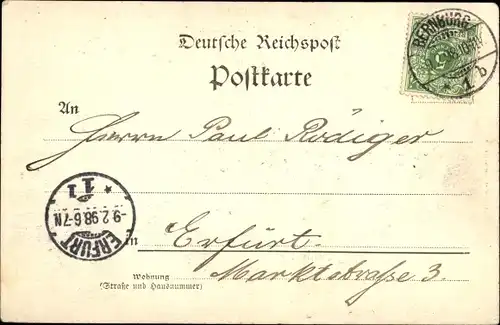 Deutsche Reichspost
Postkarte
BERNBURG
* 1 b
5
An
Herrn Paul Rödiger
ERFURT
* 11
-9.2.98.6-7N
in Erfurt.
Marktstrasse 3.
Wohnung
(Straße und Hausnummer)